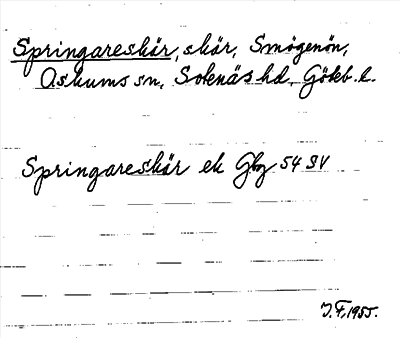 Springareskär, skär, Smögenön,
Askums sn, Sotenäs hd, Göteb. l.
Springareskär ek Gbg 54 SV
J.F. 1955.